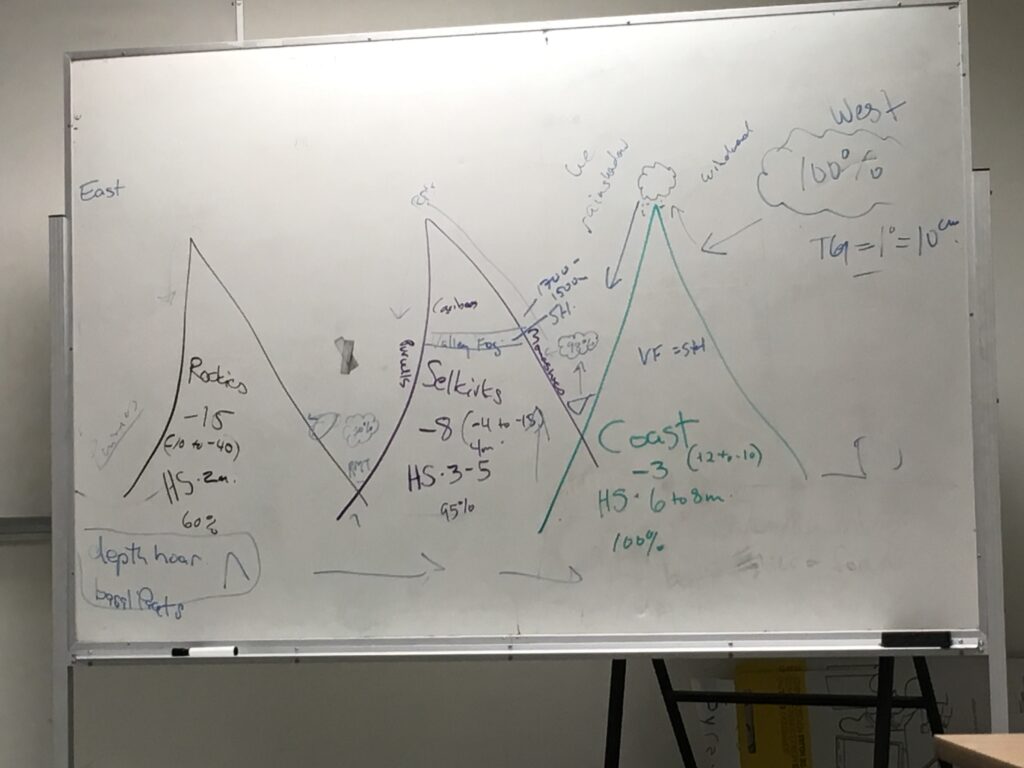 West
100%
TG = 1° = 10cm
rainshadow
windward
East
1700-
1500m
SH.
Cariboos
Valley Fog
Monashees
Purcells
VF = SH
Rockies
-15
(-10 to -40)
HS. 2m.
60%
RMT
Selkirks
-8 (-4 to -15)
4m
HS. 3-5
95%
Coast
-3 (+2 to -10)
HS. 6 to 8m.
100%
depth hoar
basal facets